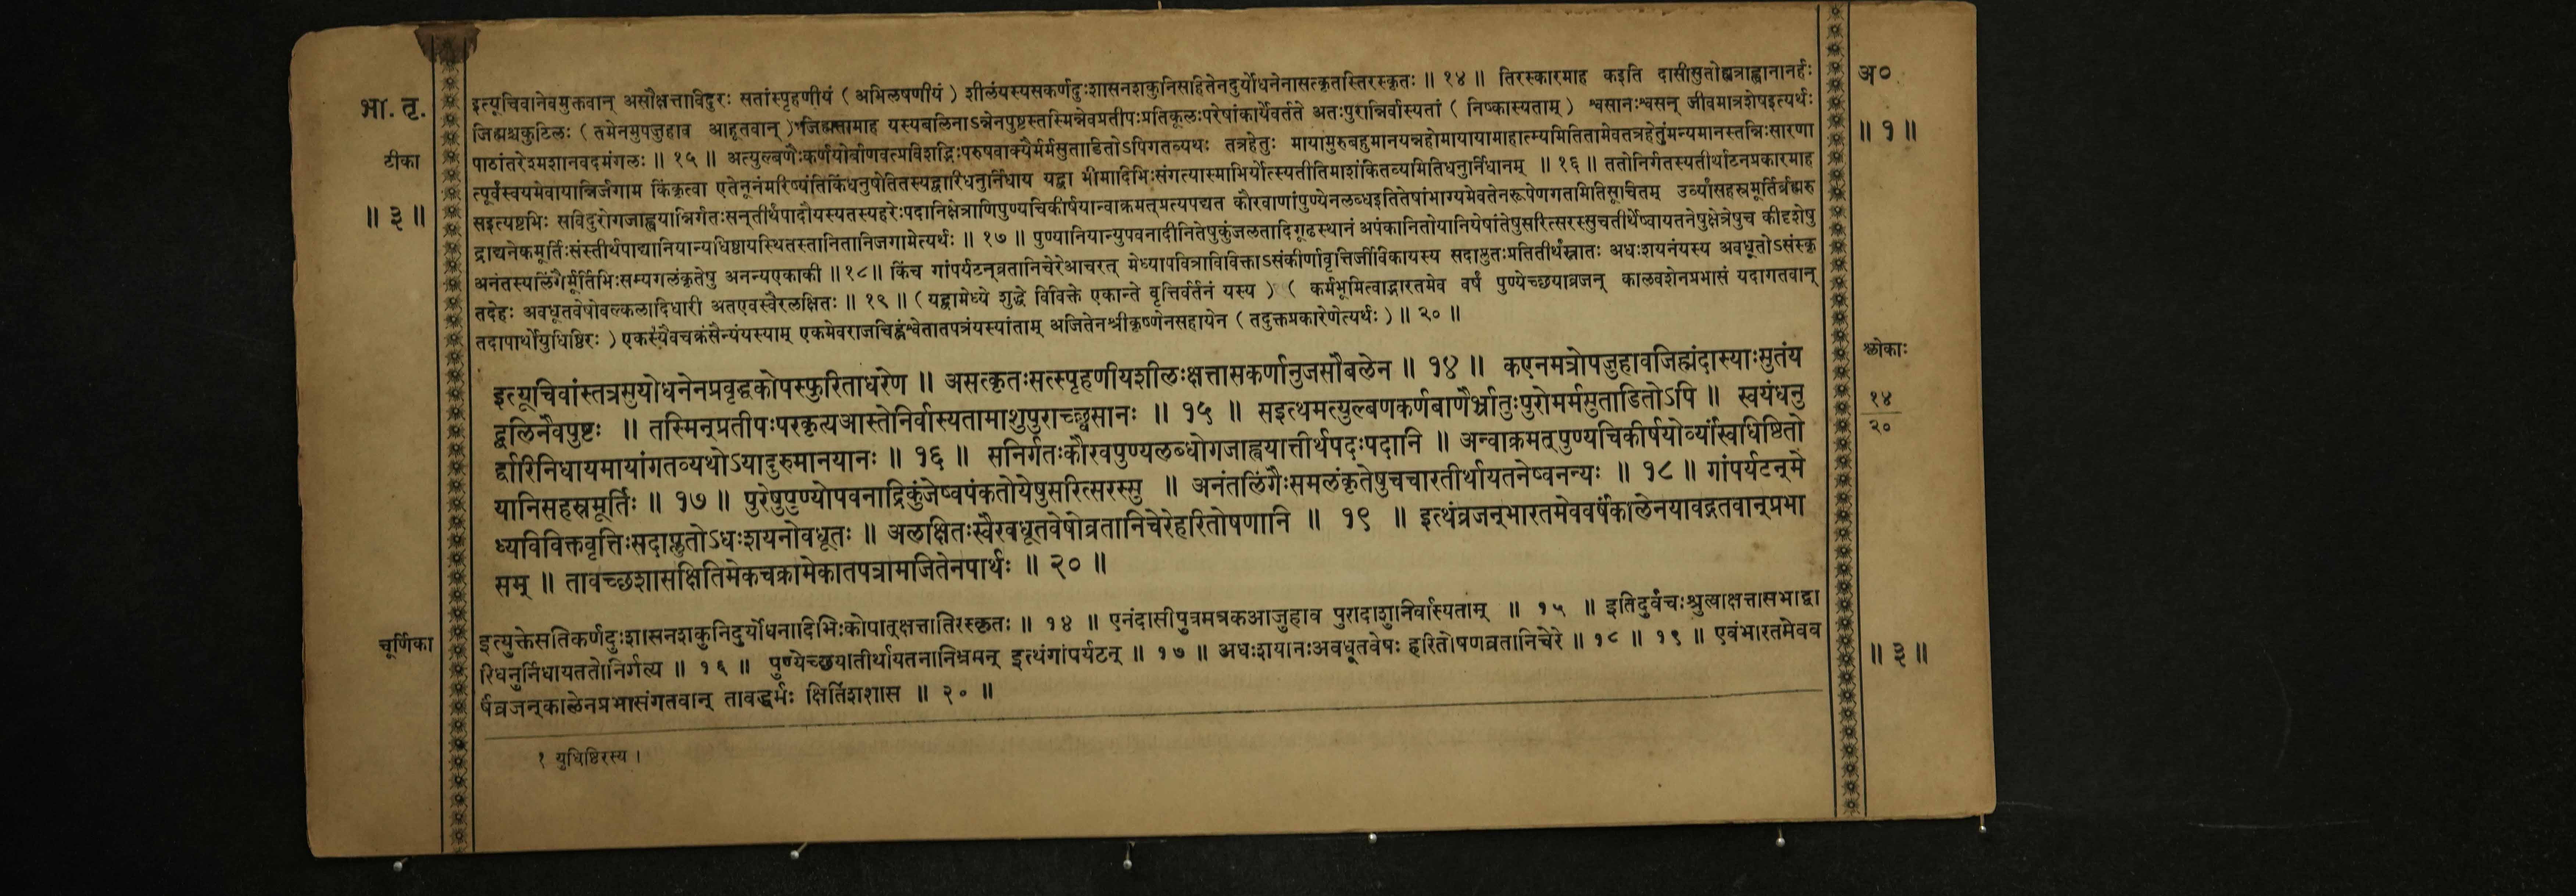 भा. तृ.
टीका
॥ ३ ॥
इत्यूचिवानेवमुक्तवान् असौक्षत्ताविदुरः सतांस्पृहणीयं ( अभिलषणीयं ) शीलंयस्यसकर्णदुःशासनशकुनिसहितेनदुर्योधनेनासत्कृतस्तिरस्कृतः ॥ १४ ॥ तिरस्कारमाह कइति दासीसुतोह्यत्राह्वानानर्हः
जिह्मश्चकुटिलः ( तमेनमुपजुहाव आहूतवान् ) जिह्मतामाह यस्यबलिनाऽन्नेनपुष्टस्तस्मिन्नेवप्रतीपःप्रतिकूलःपरेषांकार्येवर्तते अतःपुरान्निर्वास्यतां ( निष्कास्यताम् ) श्वसानःश्वसन् जीवमात्रशेषइत्यर्थः
पाठांतरेश्मशानवदमंगलः ॥ १५ ॥ अत्युल्बणैःकर्णयोर्बाणवत्प्रविशद्भिःपरुषवाक्यैर्मर्मसुताडितोऽपिगतव्यथः तत्रहेतुः मायामुरुबहुमानयन्नहोमायायामाहात्म्यमितितामेवतत्रहेतुंमन्यमानस्तन्निःसारणा
त्पूर्वंस्वयमेवायान्निर्जगाम किंकृत्वा एतेनूनंमरिष्यंतिकिंधनुषोतितस्यद्वारिधनुर्निधाय यद्वा भीमादिभिःसंगत्यास्माभिर्योत्स्यतीतिमाशंकितव्यमितिधनुर्निधानम् ॥ १६ ॥ ततोनिर्गतस्यतीर्थाटनप्रकारमाह
सइत्यष्टभिः सविदुरोगजाह्वयान्निर्गतःसन्तीर्थपादौयस्यतस्यहरेःपदानिक्षेत्राणिपुण्यचिकीर्षयान्वाक्रमत्प्रत्यपद्यत कौरवाणांपुण्येनलब्धइतितेषांभाग्यमेवतेनरूपेणगतमितिसूचितम् उर्व्यांसहस्रमूर्तिर्ब्रह्मरु
द्राद्यनेकमूर्तिःसंस्तीर्थपाद्यानियान्यधिष्ठायस्थितस्तानितानिजगामेत्यर्थः ॥ १७ ॥ पुण्यानियान्युपवनादीनितेषुकुंजलतादिगूढस्थानं अपंकानितोयानियेषांतेषुसरित्सरस्सुचतीर्थेष्वायतनेषुक्षेत्रेषुच कीदृशेषु
अनंतस्यलिंगैर्मूर्तिभिःसम्यगलंकृतेषु अनन्यएकाकी ॥१८॥ किंच गांपर्यटन्व्रतानिचेरेआचरत् मेध्यापवित्राविविक्ताऽसंकीर्णावृत्तिर्जीविकायस्य सदाप्लुतःप्रतितीर्थंस्नातः अधःशयनंयस्य अवधूतोऽसंस्कृ
तदेहः अवधूतवेषोवल्कलादिधारी अतएवस्वैरलक्षितः ॥ १९ ॥ ( यद्वामेध्ये शुद्धे विविक्ते एकान्ते वृत्तिर्वर्तनं यस्य ) ( कर्मभूमित्वाद्भारतमेव वर्षं पुण्येच्छयाव्रजन् कालवशेनप्रभासं यदागतवान्
तदापार्थोयुधिष्ठिरः ) एकस्यैवचक्रंसैन्यंयस्याम् एकमेवराजचिह्नंश्वेतातपत्रंयस्यांताम् अजितेनश्रीकृष्णेनसहायेन ( तदुक्तप्रकारेणेत्यर्थः ) ॥ २० ॥
इत्यूचिवांस्तत्रसुयोधनेनप्रवृद्धकोपस्फुरिताधरेण ॥ असत्कृतःसत्स्पृहणीयशीलःक्षत्तासकर्णानुजसौबलेन ॥ १४ ॥ कएनमत्रोपजुहावजिह्मंदास्याःसुतंय
द्बलिनैवपुष्टः ॥ तस्मिन्प्रतीपःपरकृत्यआस्तेनिर्वास्यतामाशुपुराच्छ्वसानः ॥ १५ ॥ सइत्थमत्युल्बणकर्णबाणैर्भ्रातुःपुरोमर्मसुताडितोऽपि ॥ स्वयंधनु
र्द्वारिनिधायमायांगतव्यथोऽयादुरुमानयानः ॥ १६ ॥ सनिर्गतःकौरवपुण्यलब्धोगजाह्वयात्तीर्थपदःपदानि ॥ अन्वाक्रमत्पुण्यचिकीर्षयोर्व्यांस्वधिष्ठितो
यानिसहस्रमूर्तिः ॥ १७ ॥ पुरेषुपुण्योपवनाद्रिकुंजेष्वपंकतोयेषुसरित्सरस्सु ॥ अनंतलिंगैःसमलंकृतेषुचचारतीर्थायतनेष्वनन्यः ॥ १८ ॥ गांपर्यटन्मे
ध्यविविक्तवृत्तिःसदाप्लुतोऽधःशयनोवधूतः ॥ अलक्षितःस्वैरवधूतवेषोव्रतानिचेरेहरितोषणानि ॥ १९ ॥ इत्थंव्रजन्भारतमेववर्षंकालेनयावद्गतवान्प्रभा
सम् ॥ तावच्छशासक्षितिमेकचक्रामेकातपत्रामजितेनपार्थः ॥ २० ॥
चूर्णिका
इत्युक्तेसतिकर्णदुःशासनशकुनिदुर्योधनादिभिःकोपात्क्षत्तातिरस्कृतः ॥ १४ ॥ एनंदासीपुत्रमत्रकआजुहाव पुरादाशुनिर्वास्यताम् ॥ १५ ॥ इतिदुर्वचःश्रुत्वाक्षत्तासभाद्वा
रिधनुर्निधायततोनिर्गत्य ॥ १६ ॥ पुण्येच्छयातीर्थायतनानिभ्रमन् इत्थंगांपर्यटन् ॥ १७ ॥ अधःशयानःअवधूतवेषः हरितोषणव्रतानिचेरे ॥ १८ ॥ १९ ॥ एवंभारतमेवव
र्षंव्रजन्कालेनप्रभासंगतवान् तावद्धर्मः क्षितिंशशास ॥ २० ॥
१ युधिष्ठिरस्य ।
अ०
॥ १ ॥
श्लोकाः
१४
२०
॥ ३ ॥